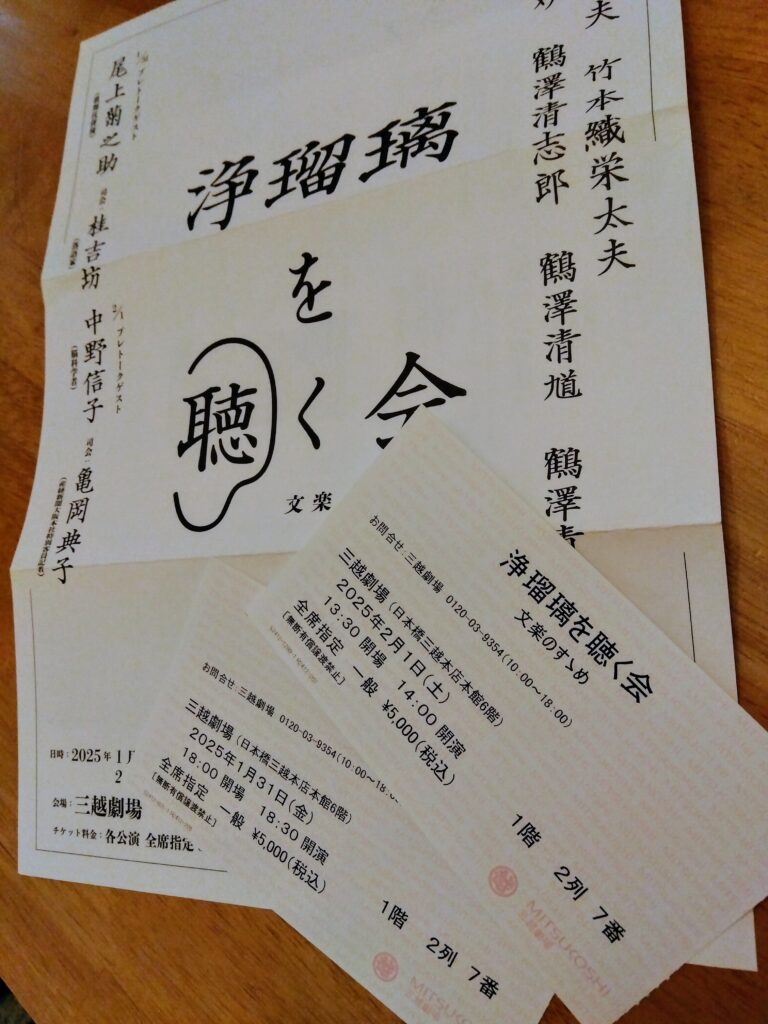 夫 竹本織栄太夫
鶴澤清志郎 鶴澤清馗 鶴澤清
浄瑠璃
を
聴く会
文楽
プレトークゲスト
尾上菊之助
司会
桂吉坊
(落語家)
2/1 プレトークゲスト
中野信子
(脳科学者)
司会
亀岡典子
(産経新聞大阪本社特別客員記者)
日時:2025年1月
2
会場:三越劇場
チケット料金:各公演 全席指定
浄瑠璃を聴く会
文楽のすゝめ
お問合せ:三越劇場 0120-03-9354(10:00〜18:00)
三越劇場(日本橋三越本店本館6階)
2025年2月1日(土)
13:30 開場 14:00 開演
全席指定 一般 ¥5,000(税込)
[無断有償譲渡禁止]
1階 2列 7番
MITSUKOSHI
三越劇場
お問合せ:三越劇場 0120-03-9354(10:00〜18:
三越劇場(日本橋三越本店本館6階)
2025年1月31日(金)
18:00 開場 18:30 開演
全席指定 一般 ¥5,000(税込)
[無断有償譲渡禁止]
1階 2列 7番
MITSUKOSHI
三越劇場